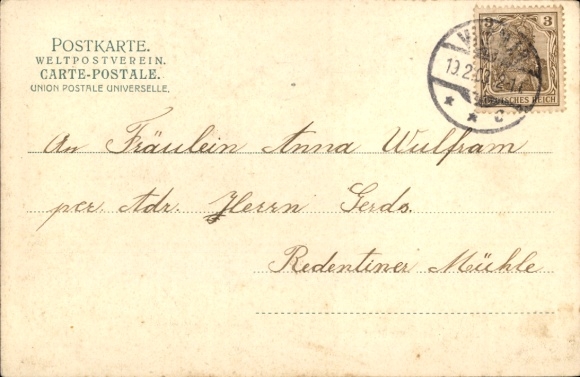 POSTKARTE.
WELTPOSTVEREIN.
CARTE-POSTALE.
UNION POSTALE UNIVERSELLE.
3 3
DEUTSCHES REICH
C
An Fräulein Anna Wulfram
per Adr. Herrn Gerds.
Redentiner Mühle